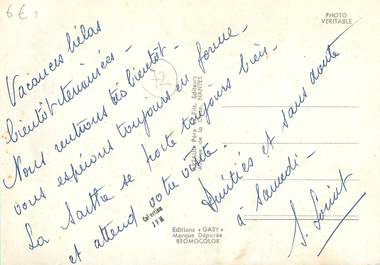 6€
PHOTO
VERITABLE
72
Vacances hélas
bientôt terminées -
Nous rentrons très bientôt -
vous espérons toujours en forme -
La Sarthe se porte toujours bien
et attend votre visite.
Amitiés et sans doute
à Samedi -
Collection
Editions « GABY »
Marque Déposée
BROMOCOLOR
NANTES